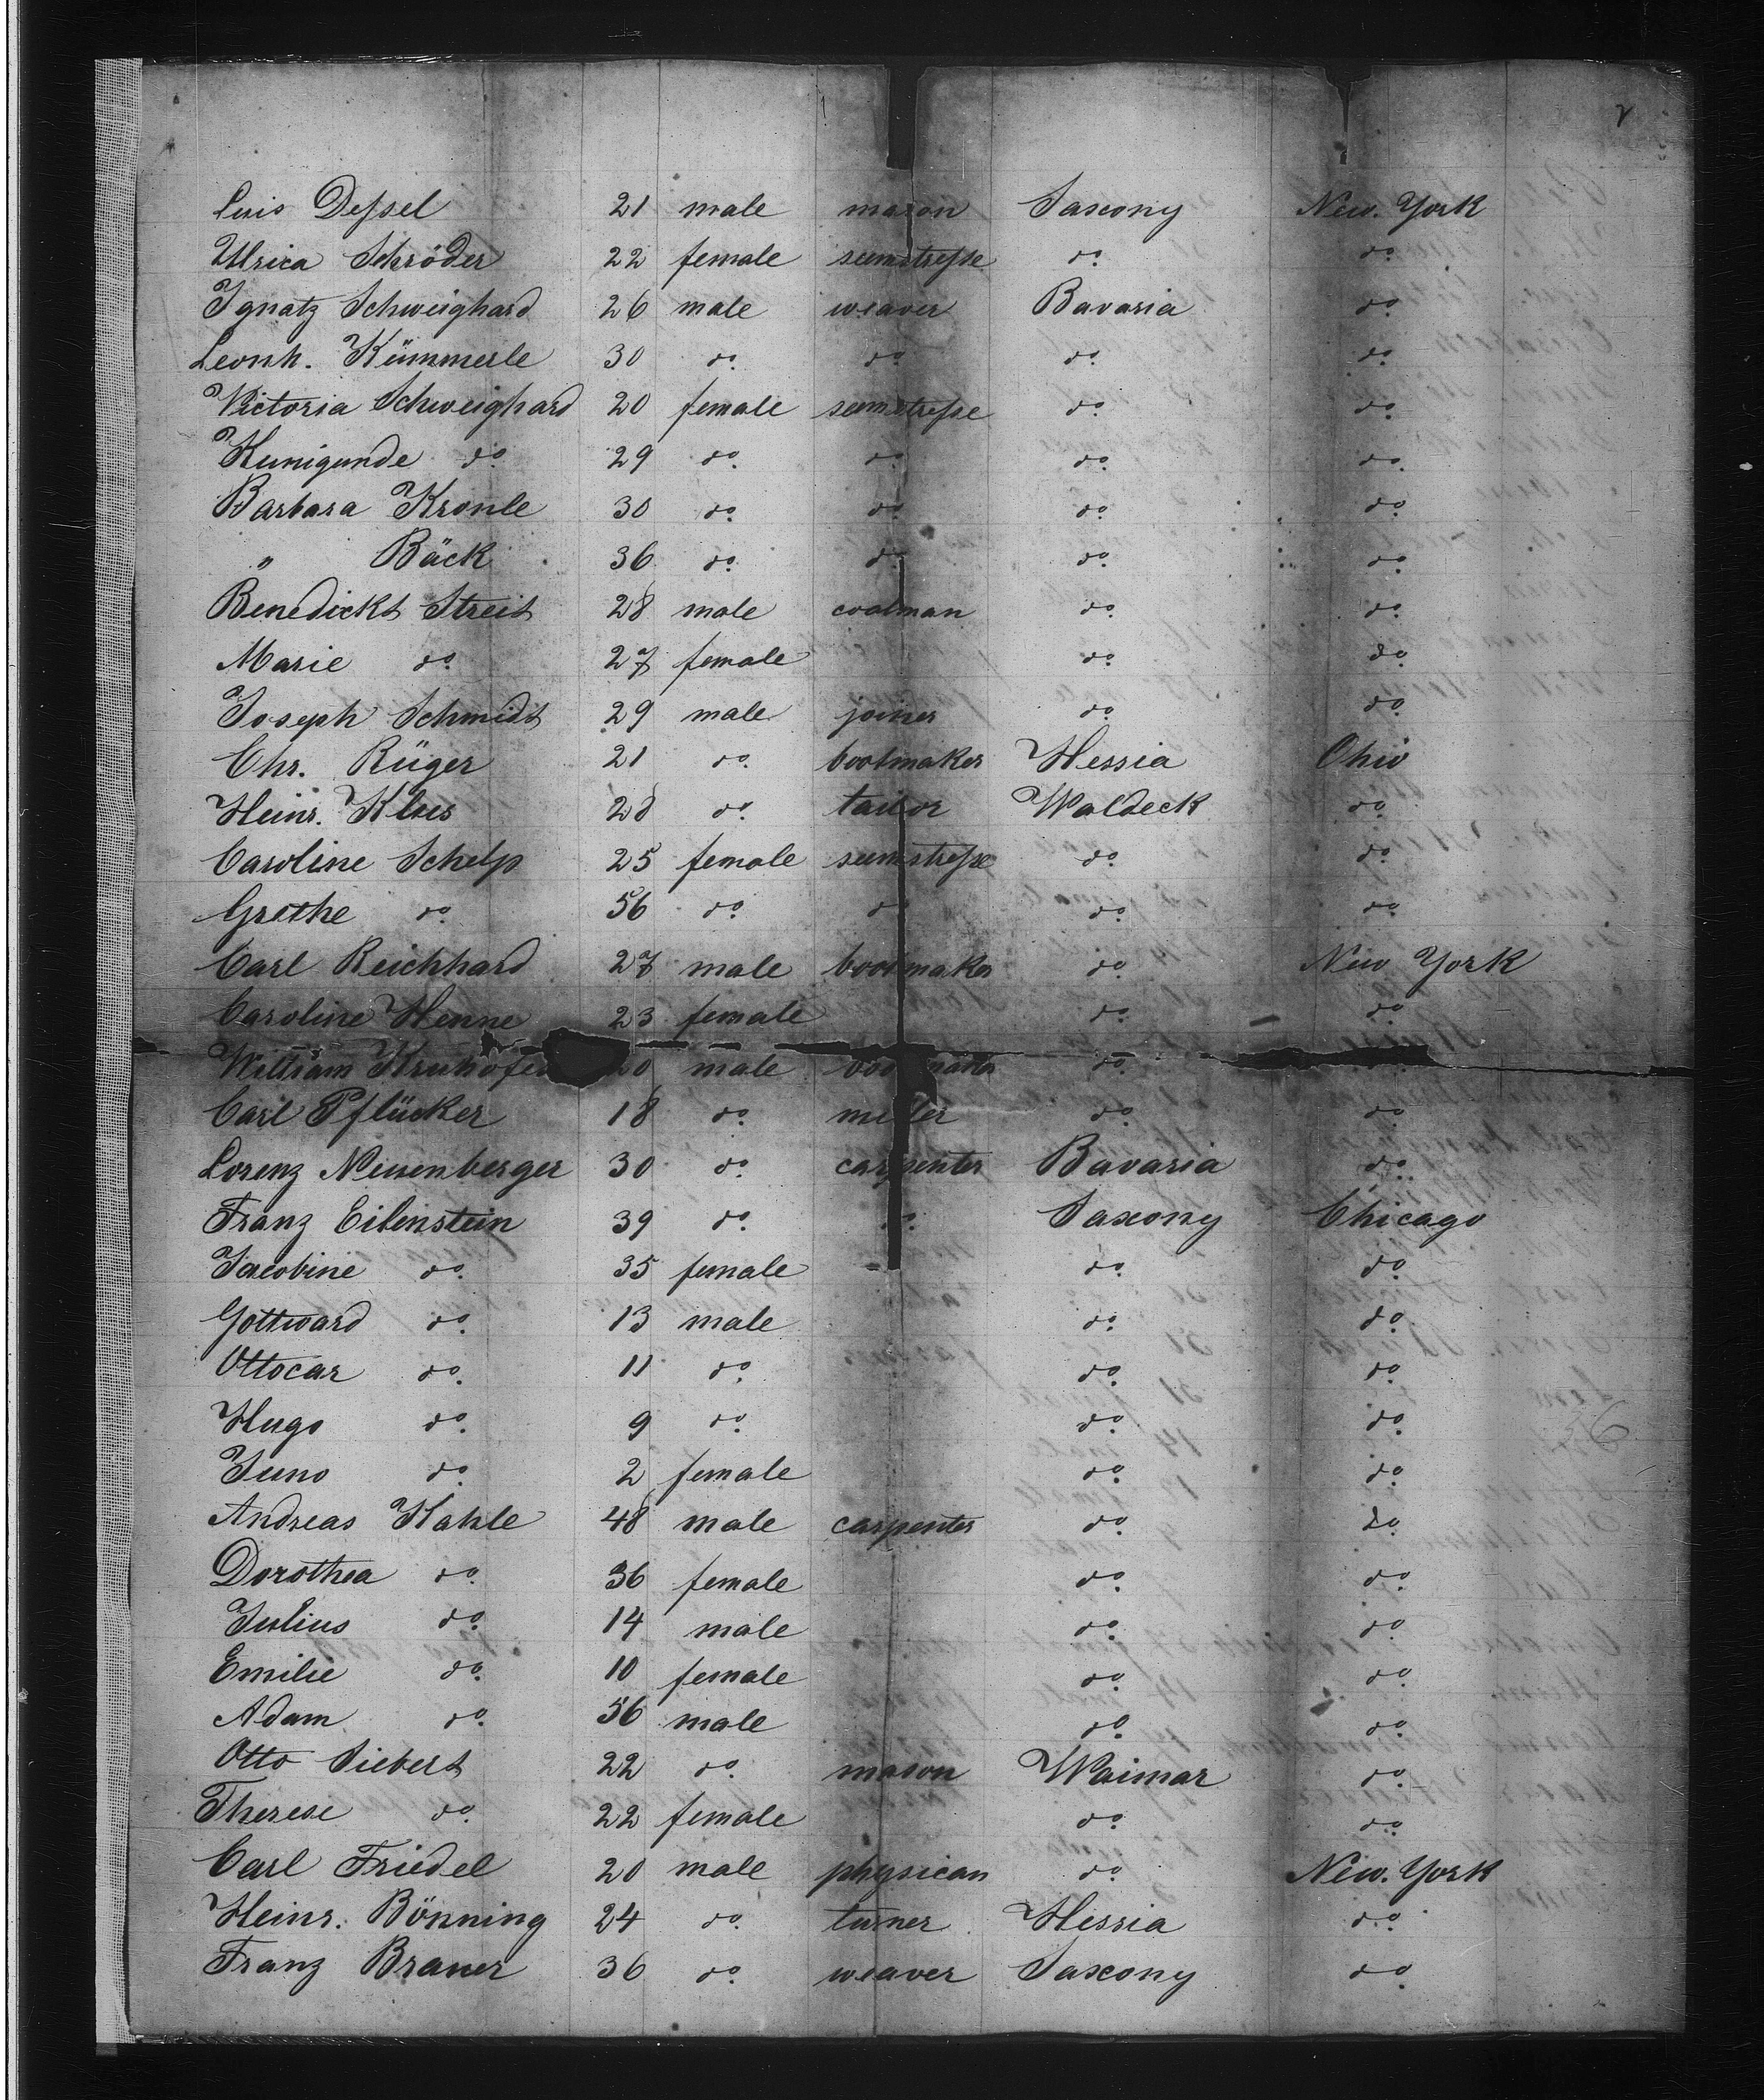 Luis Deſsel 21 male mason Saxony New. York
Ulrica Schröder 22 female seemstreſse do. do.
Ignatz Schweighard 26 male weaver Bavaria do.
Leonh. Kümmerle 30 do. do. do. do.
Victoria Schweighard 20 female seemstreſse do. do.
Kunigunde do. 29 do. do. do. do.
Barbara Kronle 30 do. do. do. do.
" Bäck 36 do. do. do. do.
Benedickt Streit 28 male coalman do. do.
Marie do. 27 female do. do.
Joseph Schmidt 29 male joiner do. do.
Chr. Rüger 21 do. bootmaker Hessia Ohio
Heinr. 28 do. tailor Waldeck do.
Caroline Schelp 25 female seemstreſse do. do.
Grethe do. 56 do. do. do. do.
Carl Reichhard 27 male bootmaker do. New York
Caroline Henne 23 female do. do.
William 20 male bootmaker do. do.
Carl Pflücker 18 do. miller do. do.
Lorenz Neuenberger 30 do. carpenter Bavaria do.
Franz Eilenstein 39 do. do. Saxony Chicago
Jacobine do. 35 female do. do.
Gottward do. 13 male do. do.
Ottocar do. 11 do. do. do.
Hugo do. 9 do. do. do.
Juno do. 2 female do. do.
Andreas Kahle 48 male carpenter do. do.
Dorothea do. 36 female do. do.
Julius do. 14 male do. do.
Emilie do. 10 female do. do.
Adam do. 56 male do. do.
Otto Siebert 22 do. mason Waimar do.
Therese do. 22 female do. do.
Carl Friedel 20 male physican do. New. York
Heinr. Bönning 24 do. turner Hessia do.
Franz Braner 36 do. weaver Saxony do.